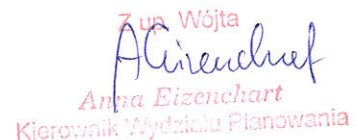 Z up. Wójta
AEizenchart
Anna Eizenchart
Kierownik Wydziału Planowania